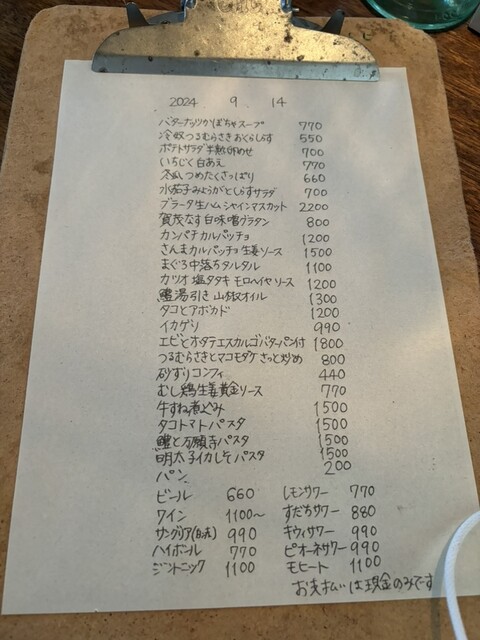 2024 9 14
バターナッツかぼちゃスープ 770
冷奴つるむらさきおくらしらす 550
ポテトサラダ半熟卵のせ 700
いちじく白あえ 770
冬瓜つめたくさっぱり 660
水茄子みょうがとしらすサラダ 700
ブラータ生ハムシャインマスカット 2200
賀茂なす白味噌グラタン 800
カンパチカルパッチョ 1200
さんまカルパッチョ生姜ソース 1500
まぐろ中落ちタルタル 1100
カツオ塩タタキ モロヘイヤソース 1200
鱧湯引き山椒オイル 1300
タコとアボカド 1200
イカゲソ 990
エビとホタテエスカルゴバターパン付 1800
つるむらさきとマコモダケさっと炒め 800
砂ずりコンフィ 440
むし鶏生姜黄金ソース 770
牛すね煮込み 1500
タコトマトパスタ 1500
鱧と万願寺パスタ 1500
明太子イカしそパスタ 1500
パン 200
ビール 660 レモンサワー 770
ワイン 1100〜 すだちサワー 880
サングリア(白赤) 990 キウイサワー 990
ハイボール 770 ピオーネサワー 990
ジントニック 1100 モヒート 1100
お支払いは現金のみです